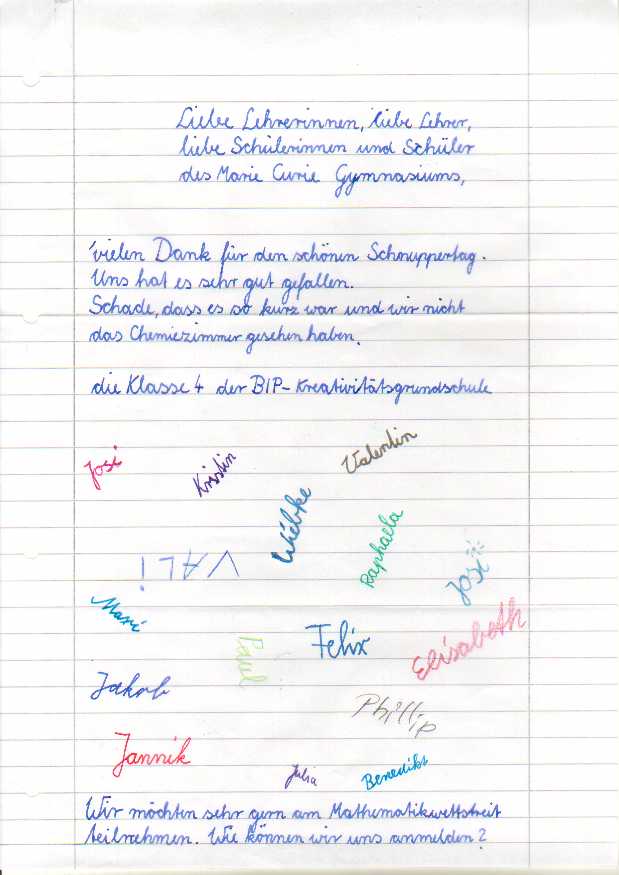 Liebe Lehrerinnen, liebe Lehrer,
liebe Schülerinnen und Schüler
des Marie Curie Gymnasiums,
vielen Dank für den schönen Schnuppertag.
Uns hat es sehr gut gefallen.
Schade, dass es so kurz war und wir nicht
das Chemiezimmer gesehen haben.
die Klasse 4 der BIP-Kreativitätsgrundschule
Josi
Kristin
Valentin
Wiebke
Raphaela
VALI
Maxi
Paul
Felix
Elisabeth
Jakob
Phillip
Jannik
Julia
Benedikt
Wir möchten sehr gern am Mathematikwettstreit
teilnehmen. Wie können wir uns anmelden?